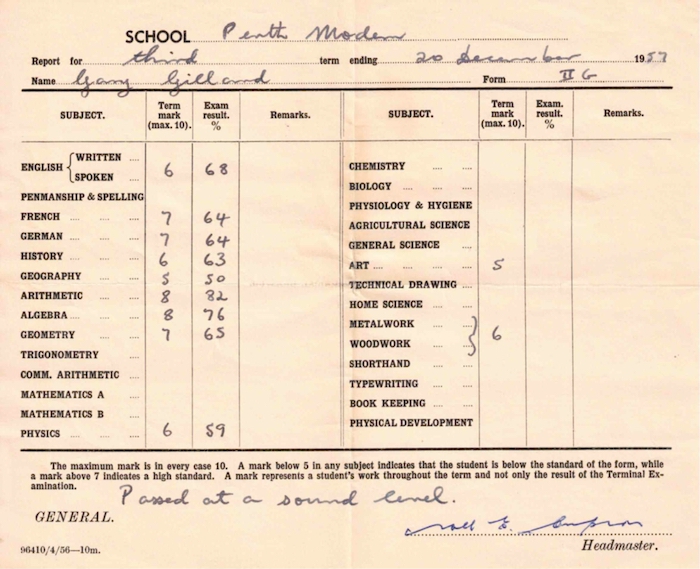 SCHOOL Perth Modern
Report for third term ending 20 December 1957
Name Gary Gilland Form II G
SUBJECT. Term mark (max. 10). Exam result. % Remarks. SUBJECT. Term mark (max. 10). Exam. result. % Remarks.
ENGLISH { WRITTEN .... SPOKEN .... 6 68
PENMANSHIP & SPELLING
FRENCH .... .... .... 7 64
GERMAN .... .... .... 7 64
HISTORY .... .... .... 6 63
GEOGRAPHY .... .... 5 50
ARITHMETIC .... .... 8 82
ALGEBRA .... .... .... 8 76
GEOMETRY .... .... 7 65
TRIGONOMETRY ....
COMM. ARITHMETIC ....
MATHEMATICS A ....
MATHEMATICS B ....
PHYSICS .... .... .... 6 59
CHEMISTRY .... ....
BIOLOGY .... .... ....
PHYSIOLOGY & HYGIENE
AGRICULTURAL SCIENCE
GENERAL SCIENCE ....
ART .... .... .... .... 5
TECHNICAL DRAWING ....
HOME SCIENCE .... ....
METALWORK .... ....
WOODWORK .... .... } 6
SHORTHAND .... ....
TYPEWRITING .... ....
BOOK KEEPING .... ....
PHYSICAL DEVELOPMENT
The maximum mark is in every case 10. A mark below 5 in any subject indicates that the student is below the standard of the form, while
a mark above 7 indicates a high standard. A mark represents a student's work throughout the term and not only the result of the Terminal Ex-
amination.
Passed at a sound level.
GENERAL.
Headmaster.
96410/4/56—10m.